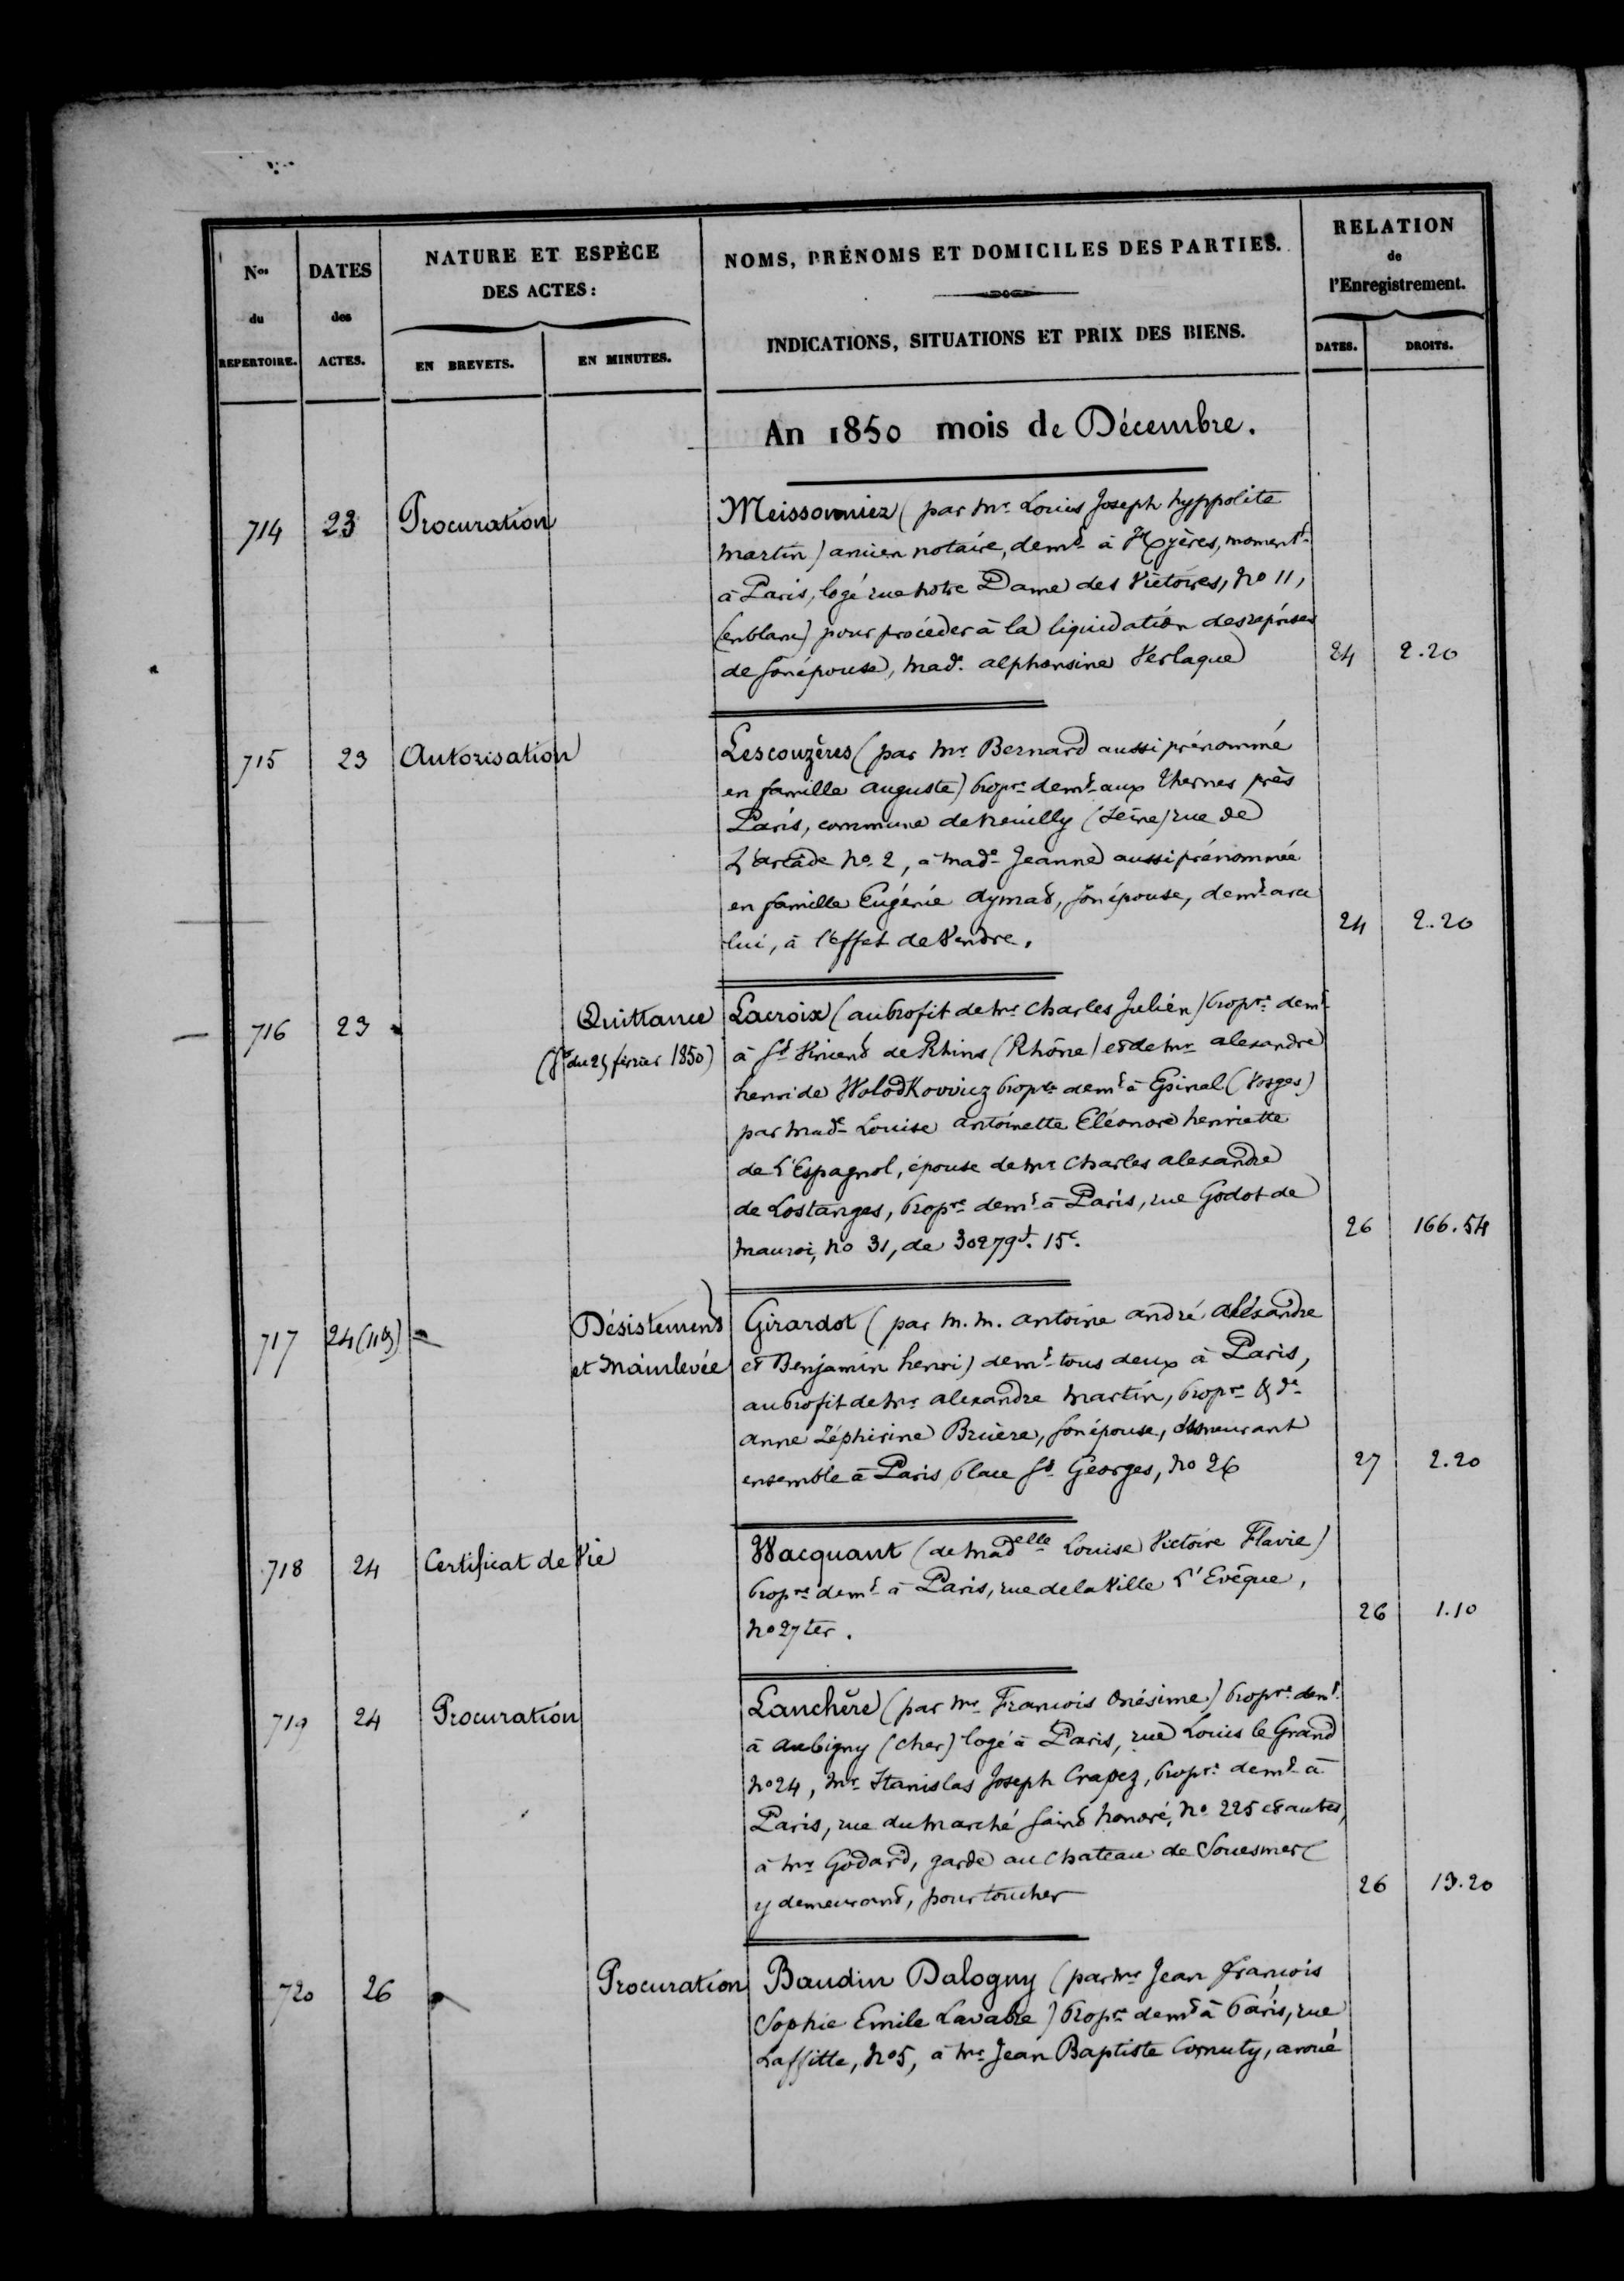 Nos
du
REPERTOIRE.
DATES
des
ACTES.
NATURE ET ESPÈCE
DES ACTES:
EN BREVETS.
EN MINUTES.
NOMS, PRÉNOMS ET DOMICILES DES PARTIES.
INDICATIONS, SITUATIONS ET PRIX DES BIENS.
RELATION
de
l'Enregistrement.
DATES.
DROITS.
An 1850 mois de Décembre.
714 23 Procuration Meissonnier (par Mr. Louis Joseph hyppolite
Martin) ancien notaire, demt. à Hyères, moment.
à Paris, logé rue Notre Dame des Victoires, No 11,
(en blanc) pour procéder à la liquidation des reprises
de son épouse, Made. alphonsine Verlaque 24 2.20
715 23 Autorisation Lescouzères (par Mr Bernard aussi prénommé
en famille Auguste) propre. demt. aux Thernes près
Paris, commune de Neuilly (Seine) rue de
L'arcade No. 2, à Made. Jeanne aussi prénommée
en famille Eugénie Aymad, son épouse, demt. avec
lui, à l'effet de Vendre. 24 2.20
716 23 Quittance Lacroix (au profit de Mr. Charles Julien) propre. demt.
(Se du 25 février 1850) à St Vincent de Rhins (Rhône) et de Mr alexandre
henri de Wolodkowicz propre demt. à Epinal (Vosges)
par Made. Louise Antoinette Eléonore henriette
de L'Espagnol, épouse de Mr Charles alexandre
de Lostanges, propre. demt. à Paris, rue Godot de
Mauroi, No 31, de 30279f. 15c. 26 166.54
717 24 (11bs) Désistement Girardot (par M.M. Antoine André Aléxandre
et Mainlevée et Benjamin henri) demt. tous deux à Paris,
au profit de Mr alexandre Martin, propre & De.
Anne Zéphirine Bruère, son épouse, demeurant
ensemble à Paris place St. Georges, No 26 27 2.20
718 24 Certificat de Vie Wacquant (de Madelle Louise Victoire Flavie)
propre demt. à Paris, rue de la Ville L'Evêque,
No 27 ter. 26 1.10
719 24 Procuration Lanchère (par Mr. Francois Onésime) propre. demt.
à Aubigny (Cher) logé à Paris, rue Louis le Grand
No 24, Mr. Stanislas Joseph Crapez, propre. demt. à
Paris, rue du Marché Saint honoré, No. 225 et autres,
à Mr Godard, garde au Chateau de Souesmes
y demeurant, pour toucher 26 13.20
720 26 Procuration Baudin Dalogny (par Mr Jean françois
Sophie Emile Lavabre) propre demt à Paris, rue
Laffitte, No 5, à Mr Jean Baptiste Cornuty, avoué